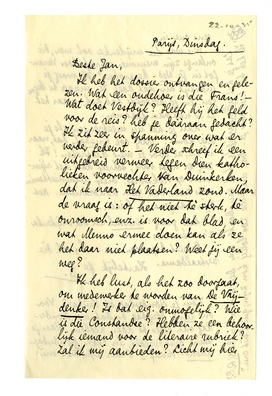 22-10-35
Parijs, Dinsdag.
Beste Jan,
Ik heb het dossier ontvangen en gele-
zen. Wat een oudehoer is die Frans! –
Wat doet Vestdijk? Heeft hij het geld
voor de reis? heb je daaraan gedacht?
Ik zit zeer in spanning over wat er
verder gebeurt. – Verder schreef ik een
uitgebreid verweer tegen dien katho-
lieken voorvechter Van Duinkerken,
dat ik naar Het Vaderland zond. Maar
de vraag is: of het niet te sterk, te
onroomsch, enz. is voor dat blad, en
wat Menno ermee doen kan als ze
het daar niet plaatsen? Weet jij een
weg?
Ik heb lust, als het zoo doorgaat,
om medewerker te worden van De Vrij-
denker! Is dat eig. onmogelijk? Wie
is die Constandse? Hebben ze een behoor-
lijk iemand voor de literaire rubriek?
Zal ik mij aanbieden? Licht mij hier